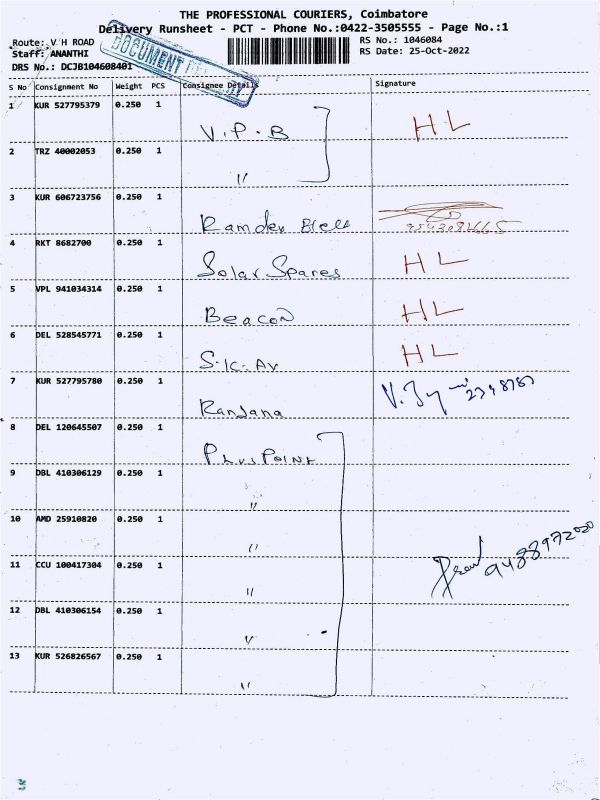 THE PROFESSIONAL COURIERS, Coimbatore
Delivery Runsheet - PCT - Phone No.:0422-3505555 - Page No.:1
Route: V H ROAD
Staff: ANANTHI
DRS No.: DCJB104608401
DOCUMENT
RS No.: 1046084
RS Date: 25-Oct-2022
S No Consignment No Weight PCS Consignee Details Signature
1 KUR 527795379 0.250 1 V.P.B HL
2 TRZ 40002053 0.250 1 "
3 KUR 606723756 0.250 1 Ramdev
4 RKT 8682700 0.250 1 Solar Spares HL
5 VPL 941034314 0.250 1 Beacon HL
6 DEL 528545771 0.250 1 S.K.Av HL
7 KUR 527795780 0.250 1 Ranjana
8 DEL 120645507 0.250 1 Plus Point
9 DBL 410306129 0.250 1 "
10 AMD 25910820 0.250 1 "
11 CCU 100417304 0.250 1 " 9488972020
12 DBL 410306154 0.250 1 "
13 KUR 526826567 0.250 1 "